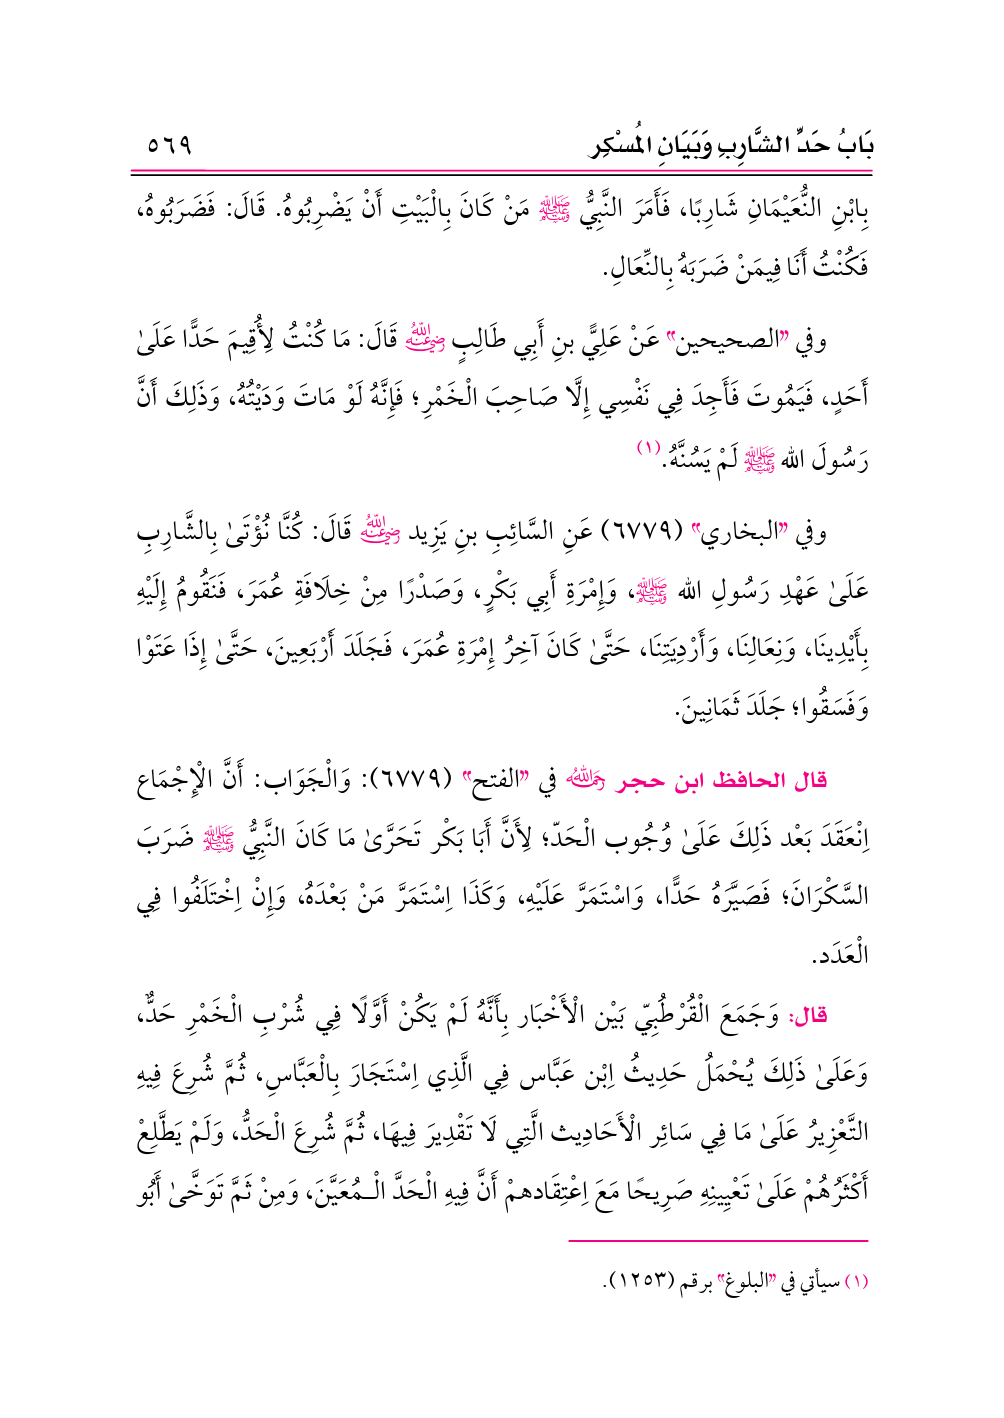 بَابُ حَدِّ الشَّارِبِ وَبَيَانِ الْمُسْكِرِ ٥٦٩
بِابْنِ النُّعَيْمَانِ شَارِبًا، فَأَمَرَ النَّبِيُّ ﷺ مَنْ كَانَ بِالْبَيْتِ أَنْ يَضْرِبُوهُ. قَالَ: فَضَرَبُوهُ،
فَكُنْتُ أَنَا فِيمَنْ ضَرَبَهُ بِالنِّعَالِ.
وفي "الصحيحين" عَنْ عَلِيِّ بنِ أَبِي طَالِبٍ رضي الله عنه قَالَ: مَا كُنْتُ لِأُقِيمَ حَدًّا عَلَىٰ
أَحَدٍ، فَيَمُوتَ فَأَجِدَ فِي نَفْسِي إِلَّا صَاحِبَ الْخَمْرِ؛ فَإِنَّهُ لَوْ مَاتَ وَدَيْتُهُ، وَذَلِكَ أَنَّ
رَسُولَ الله ﷺ لَمْ يَسُنَّهُ.(١)
وفي "البخاري" (٦٧٧٩) عَنِ السَّائِبِ بنِ يَزِيد رضي الله عنه قَالَ: كُنَّا نُؤْتَىٰ بِالشَّارِبِ
عَلَىٰ عَهْدِ رَسُولِ الله ﷺ، وَإِمْرَةِ أَبِي بَكْرٍ، وَصَدْرًا مِنْ خِلَافَةِ عُمَرَ، فَنَقُومُ إِلَيْهِ
بِأَيْدِينَا، وَنِعَالِنَا، وَأَرْدِيَتِنَا، حَتَّىٰ كَانَ آخِرُ إِمْرَةِ عُمَرَ، فَجَلَدَ أَرْبَعِينَ، حَتَّىٰ إِذَا عَتَوْا
وَفَسَقُوا؛ جَلَدَ ثَمَانِينَ.
قال الحافظ ابن حجر رحمه الله في "الفتح" (٦٧٧٩): وَالْجَوَاب: أَنَّ الْإِجْمَاع
اِنْعَقَدَ بَعْد ذَلِكَ عَلَىٰ وُجُوب الْحَدّ؛ لِأَنَّ أَبَا بَكْر تَحَرَّىٰ مَا كَانَ النَّبِيُّ ﷺ ضَرَبَ
السَّكْرَانَ؛ فَصَيَّرَهُ حَدًّا، وَاسْتَمَرَّ عَلَيْهِ، وَكَذَا اِسْتَمَرَّ مَنْ بَعْدَهُ، وَإِنْ اِخْتَلَفُوا فِي
الْعَدَد.
قال: وَجَمَعَ الْقُرْطُبِيّ بَيْن الْأَخْبَار بِأَنَّهُ لَمْ يَكُنْ أَوَّلًا فِي شُرْبِ الْخَمْرِ حَدٌّ،
وَعَلَىٰ ذَلِكَ يُحْمَلُ حَدِيثُ اِبْن عَبَّاس فِي الَّذِي اِسْتَجَارَ بِالْعَبَّاسِ، ثُمَّ شُرِعَ فِيهِ
التَّعْزِيرُ عَلَىٰ مَا فِي سَائِر الْأَحَادِيث الَّتِي لَا تَقْدِيرَ فِيهَا، ثُمَّ شُرِعَ الْحَدُّ، وَلَمْ يَطَّلِعْ
أَكْثَرُهُمْ عَلَىٰ تَعْيِينِهِ صَرِيحًا مَعَ اِعْتِقَادهمْ أَنَّ فِيهِ الْحَدَّ الْـمُعَيَّنَ، وَمِنْ ثَمَّ تَوَخَّىٰ أَبُو
(١) سيأتي في "البلوغ" برقم (١٢٥٣).